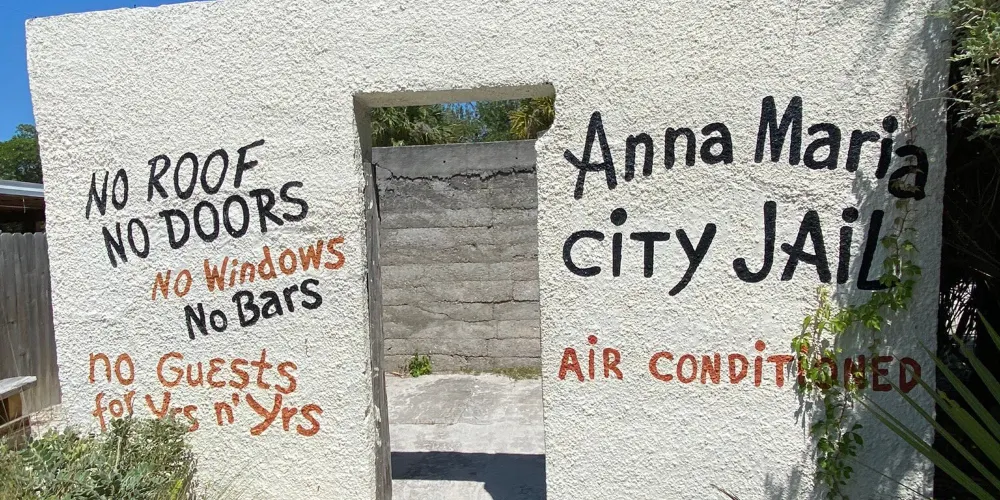 NO ROOF
NO DOORS
No Windows
No Bars
no Guests
for Yrs n' Yrs
Anna Maria
city JAiL
AiR CONDiTiONED